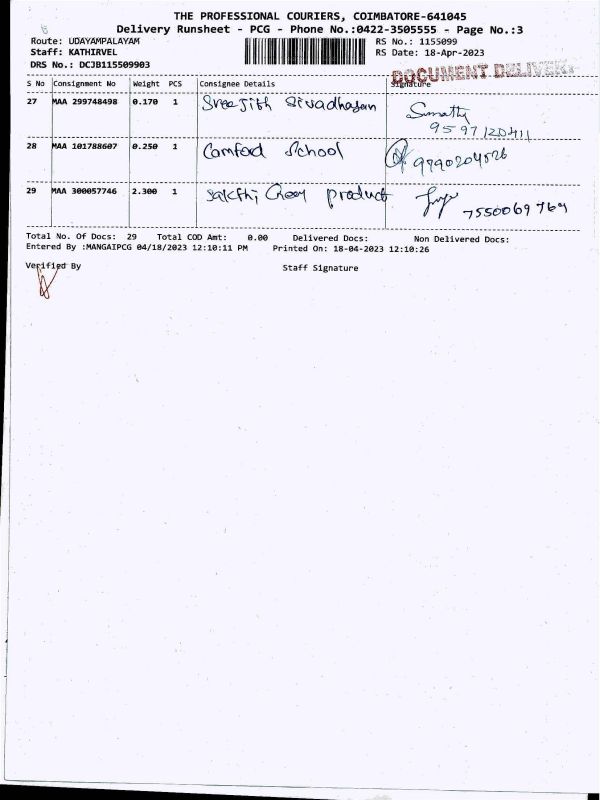 THE PROFESSIONAL COURIERS, COIMBATORE-641045
Delivery Runsheet - PCG - Phone No.:0422-3505555 - Page No.:3
Route: UDAYAMPALAYAM RS No.: 1155099
Staff: KATHIRVEL RS Date: 18-Apr-2023
DRS No.: DCJB115509903
DOCUMENT DELIVERY
S No Consignment No Weight PCS Consignee Details Signature
27 MAA 299748498 0.170 1 Sreejith Sivadhasan Sumathy
9597120411
28 MAA 101788607 0.250 1 Camford School 9790204526
29 MAA 300057746 2.300 1 Sakthi Gear product
7550069769
Total No. Of Docs: 29 Total COD Amt: 0.00 Delivered Docs: Non Delivered Docs:
Entered By :MANGAIPCG 04/18/2023 12:10:11 PM Printed On: 18-04-2023 12:10:26
Verified By Staff Signature